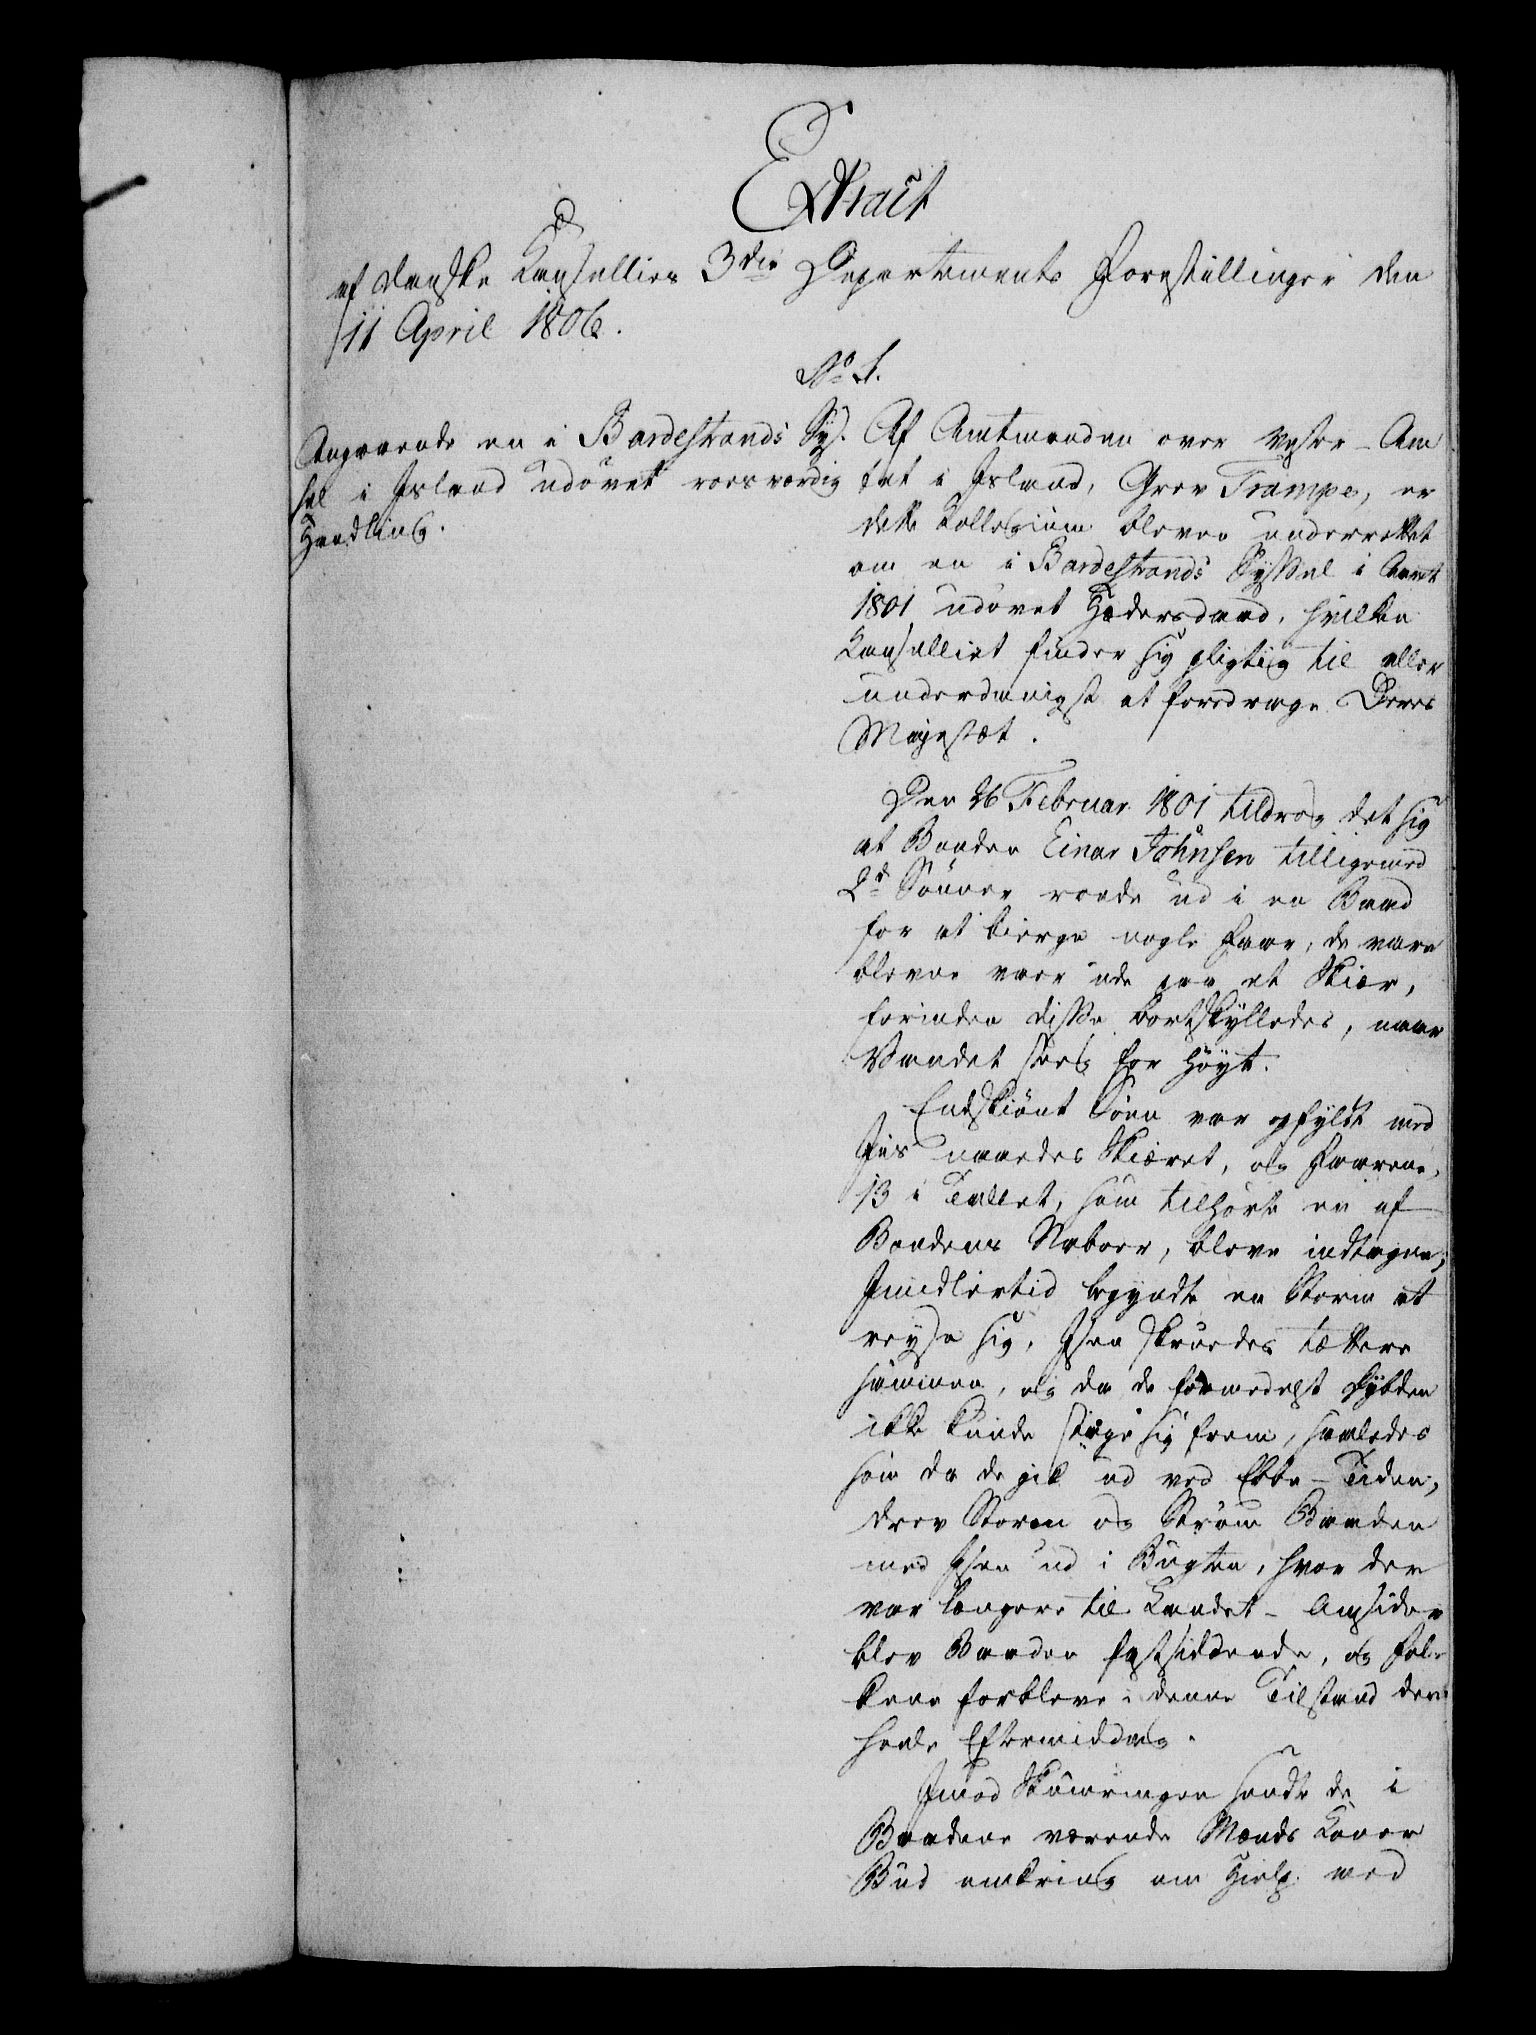 Extract
af danske Kancelliets 3die Departements Forestillinger den
11 April 1806.
No 1.
Angaaende en i Bardestrands Sys-
sel i Island udövet roesværdig
Handling.
Af Amtmanden over Vester-Am
tet i Island, Grev Trampe, er
dette Collegium bleven underrettet
om en i Bardestrands Syssel i Aaret
1801 udövet Hædersdaad, hvilken
Cancelliet finder sig pligtig til aller
underdanigst at foredrage Deres
Majestæt.
Den 26 Februar 1801 tildrog det sig
at Bonden Einar Johnsen tilligemed
2de Sönner roede ud i en Baad
for at bierge nogle Faar, de vare
blevne vaer ude paa et Skiær,
forinden disse bortskylledes, naar
Vandet steeg for höyt.
Endskiönt Söen var opfyldt med
Iis naaedes Skiæret, og Faarene,
13 i Tallet, som tilhörte en af
Bondens Naboer, bleve indtagne;
Imidlertid begyndte en Storm at
reyse sig, Isen skruedes tættere
sammen, og da de formedelst Dybden
ikke kunde stage sig frem, saaledes
som da de gik ud ved Ebbe-Tiden,
drev Storm og Ström Baaden
med Isen ud i Bugten, hvor der
var længere til Landet - Omsider
blev Baaden fastsiddende, og Fol-
kene forbleve i denne Tilstand den
heele Eftermiddag.
Imod Skumringen sendte de i
Baadene værende Mænds Koner
Bud omkring om Hielp med